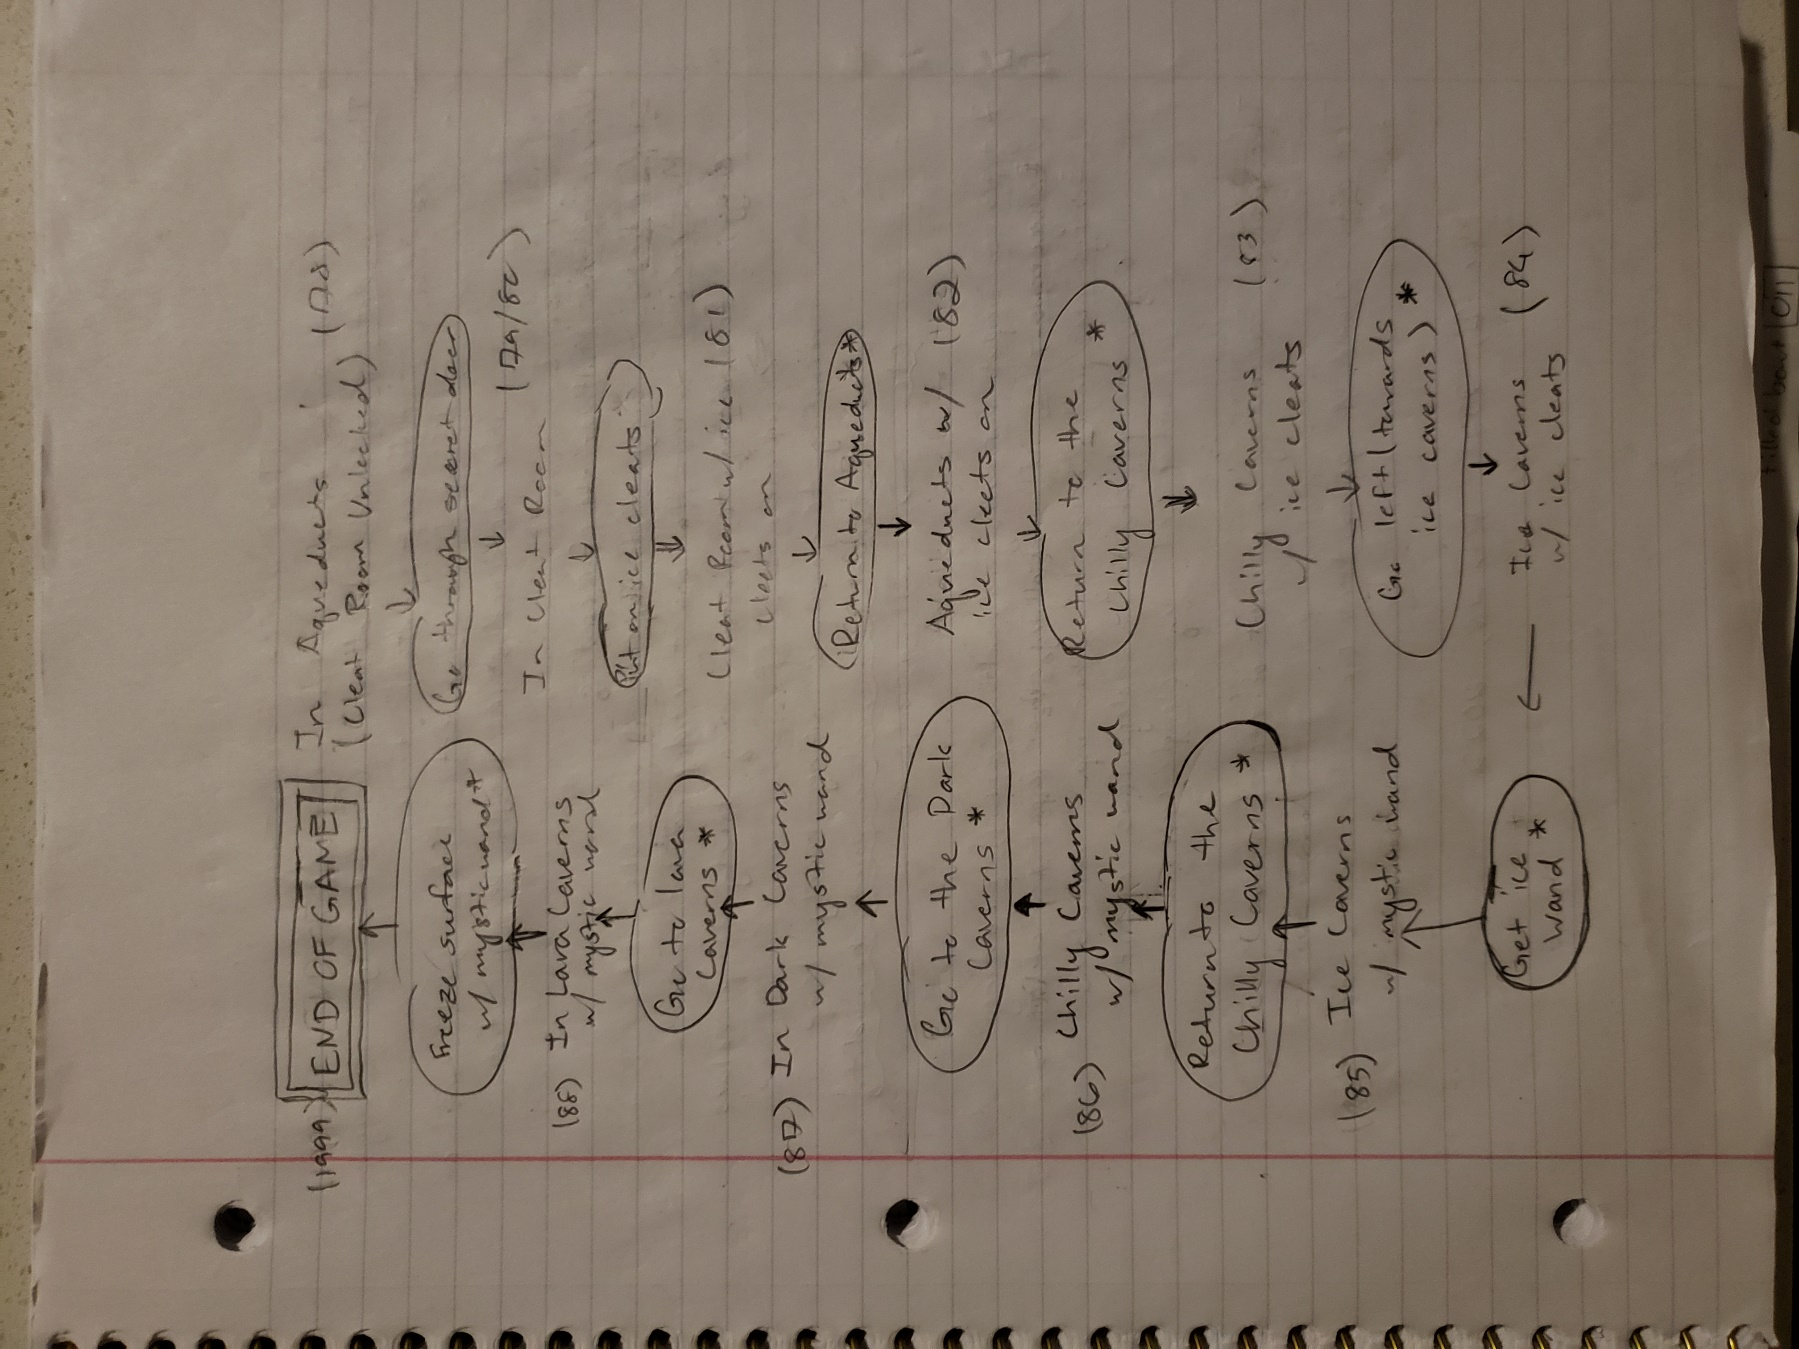 (1999) END OF GAME
Freeze surface
w/ mystic wand *
(88) In Lava Caverns
w/ mystic wand
Go to lava
Caverns *
(87) In Dark Caverns
w/ mystic wand
Go to the Dark
Caverns *
(86) Chilly Caverns
w/ mystic wand
Return to the
Chilly Caverns *
(85) Ice Caverns
w/ mystic wand
Get ice
wand *
In Aqueducts (178)
(Cleat Room Unlocked)
Go through secret door
In Cleat Room (179/80)
Put on ice cleats
Cleat Room w/ ice 181)
cleats on
Return to Aqueducts *
Aqueducts w/ 182)
ice cleats on
Return to the
Chilly Caverns *
Chilly Caverns 183)
w/ ice cleats
Go left (towards
ice caverns) *
Ice Caverns (84)
w/ ice cleats